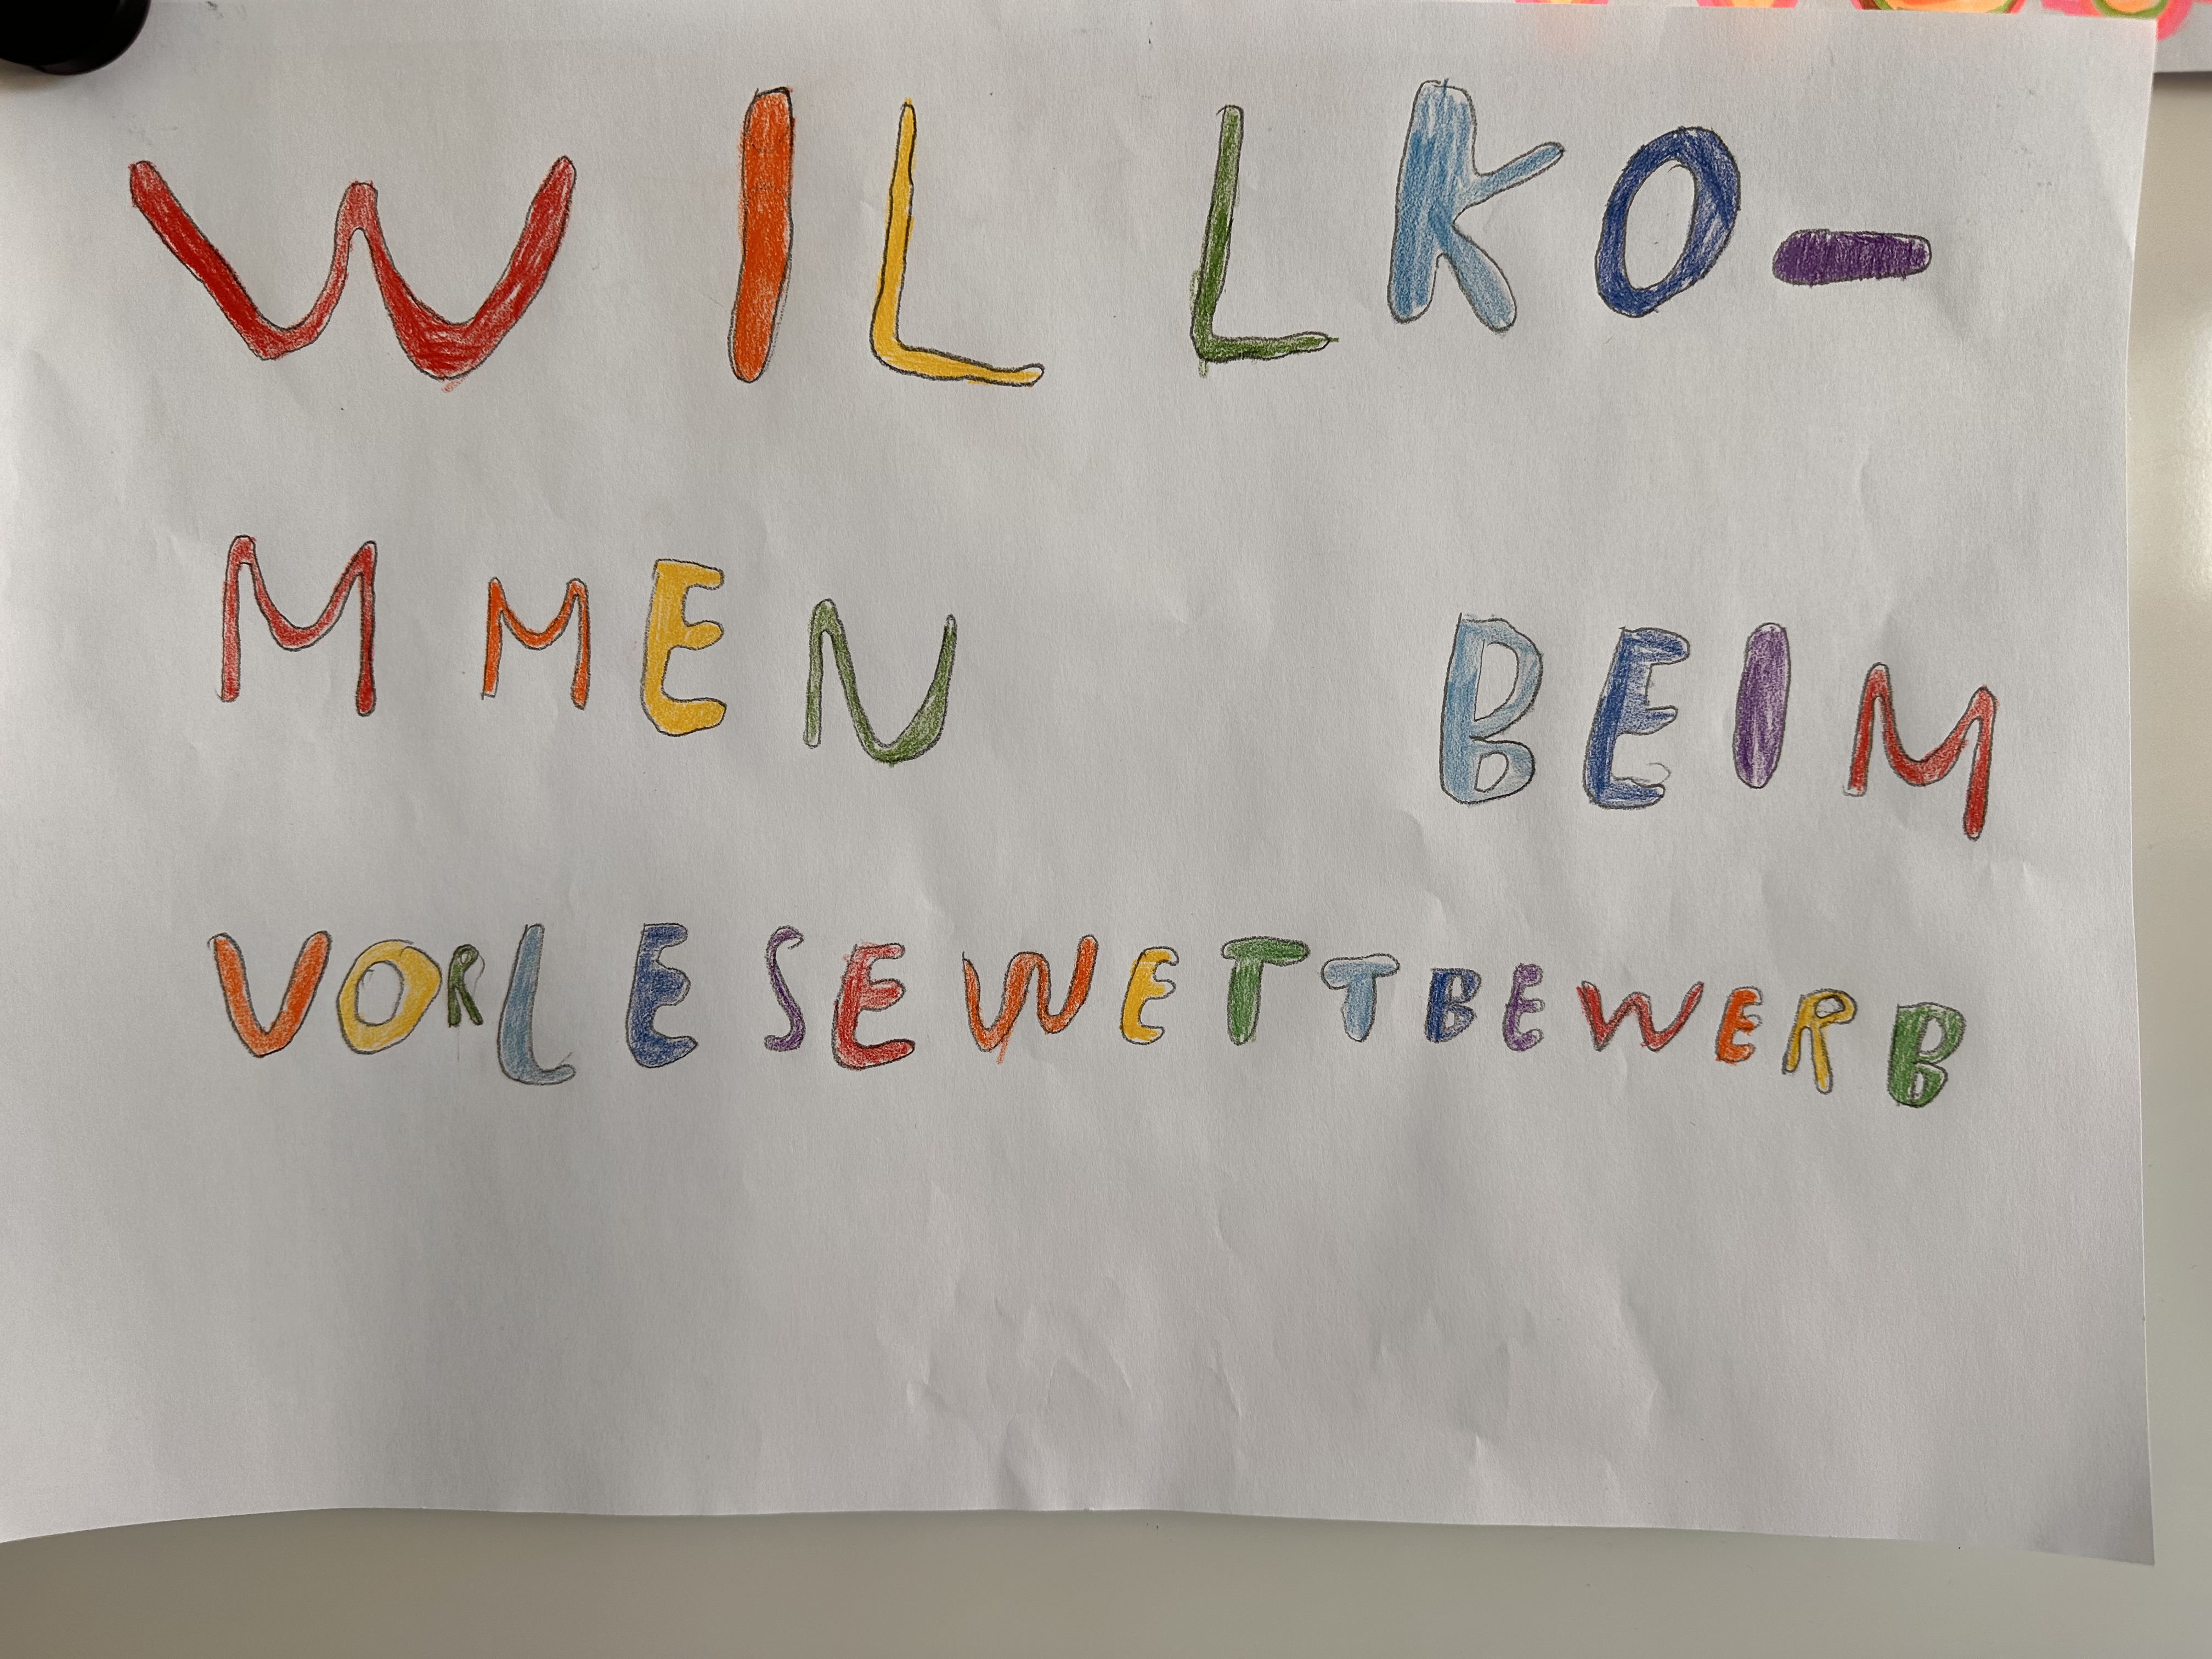 WILLKO-
MMEN BEIM
VORLESEWETTBEWERB